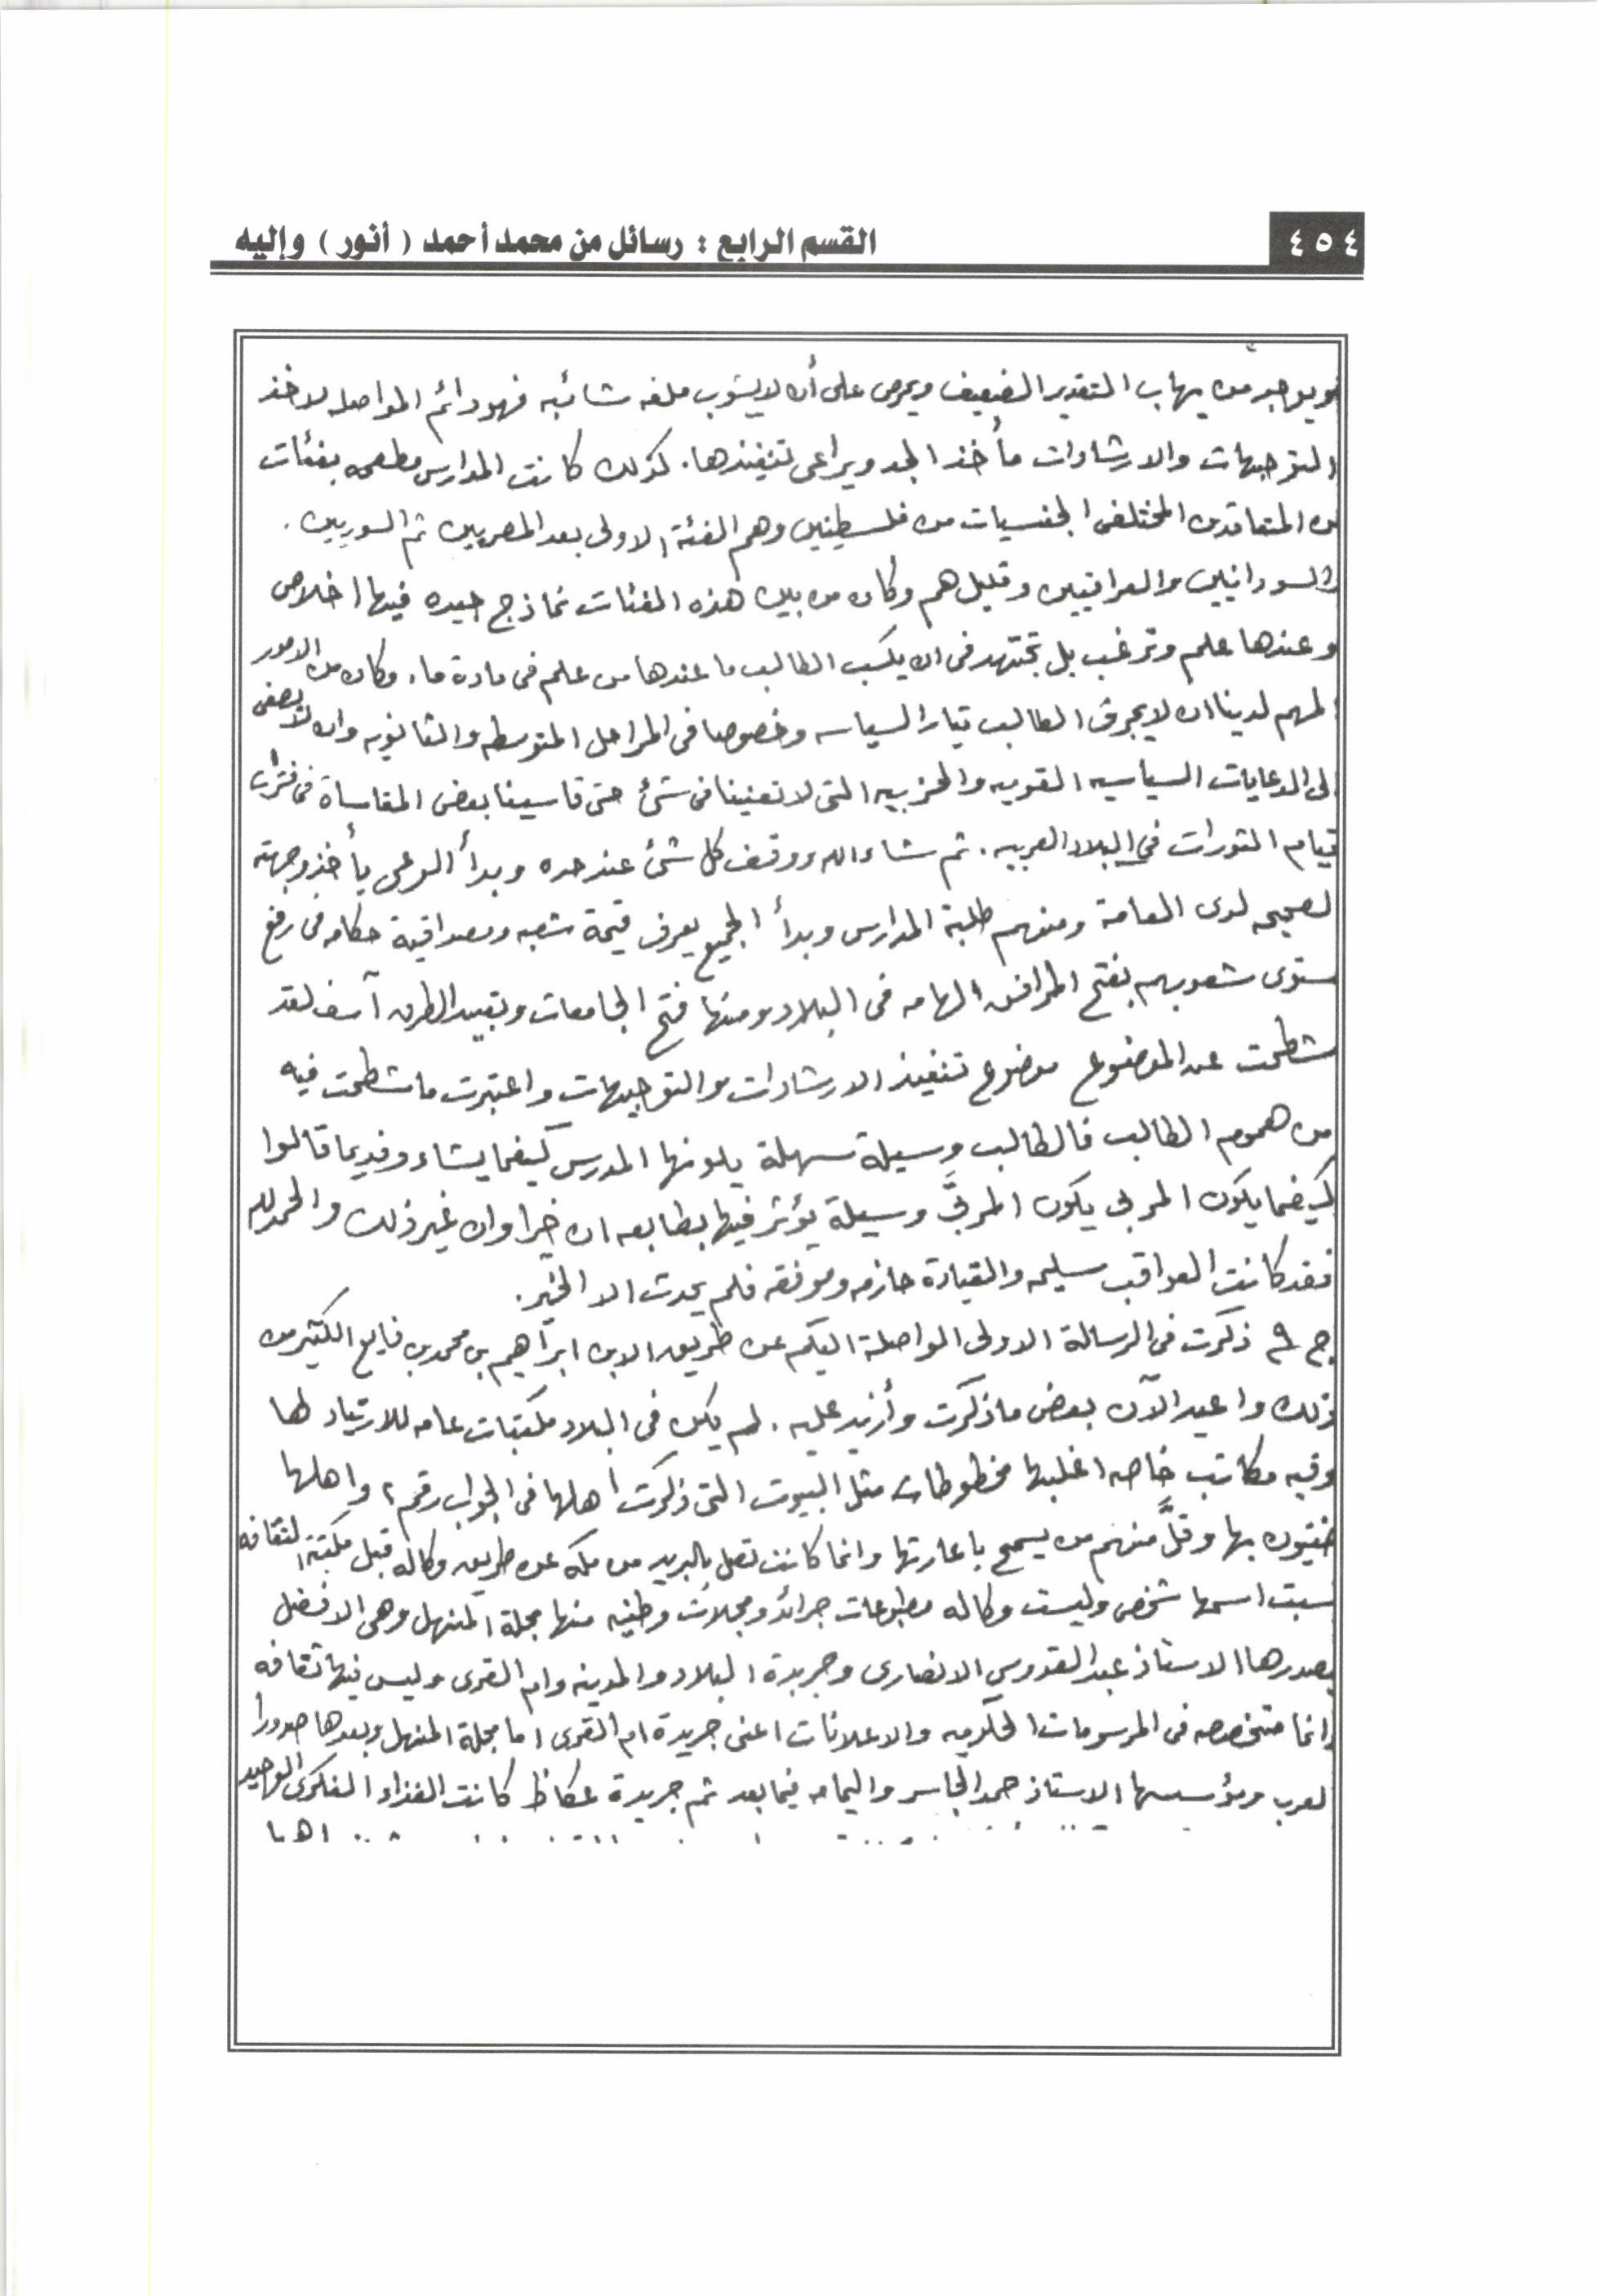 ٤٥٤
القسم الرابع : رسائل من محمد أحمد ( أنور ) وإليه
ويوجد من يهاب التقدير الضعيف ويحرص على أن لا يشوب ملفه شائبه فهو دائم المواصله لاخذ
التوجيهات والارشادات مأخذ الجد ويراعى تنفيذها. كذلك كانت المدارس مطعمه بفئات
من المتعاقدين المختلفى الجنسيات من فلسطينين وهم الفئة الاولى بعد المصريين ثم السوريين .
والسودانيين والعراقيين وقليل هم وكان من بين هذه الفئات نماذج جيده فيها اخلاص
وعندها علم وترغب بل تجتهد فى ان يكسب الطالب ما عندها من علم فى مادة ما . وكان من الامور
المهم لدينا ان لا يجرف الطالب تيار السياسه وخصوصا فى المراحل المتوسطه والثانويه وان لا يصغى
الى الدعايات السياسيه القوميه والحزبيه التى لا تعنينا فى شئ حتى قاسينا بعض المقاساة فى فترات
قيام الثورات في البلاد العربيه . ثم شاء الله ووقف كل شئ عند حده وبدأ الوعى يأخذ وجهته
لصحيحه لدى العامة ومنهم طلبة المدارس وبدأ الجميع يعرف قيمة شعبه ومصداقية حكامه فى رفع
ستوى شعوبهم بفتح المرافق الهامه فى البلاد ومنها فتح الجامعات وتعبيد الطرق آسف لقد
شطحت عن الموضوع موضوع تنفيذ الارشادات والتوجيهات واعتبرت ما شطحت فيه
من هموم الطالب فالطالب وسيلة سهلة يلونها المدرس كيفما يشاء وقديما قالوا
كيفما يكون المربى يكون المربَّى وسيلة يؤثر فيها بطابعه ان خيرا وان غير ذلك والحمدلله
فقد كانت العواقب سليمه والقيادة حازمه وموفقه فلم يحدث الا الخير .
ج ٩ ذكرت فى الرسالة الاولى الواصلة اليكم عن طريق الابن ابراهيم بن محمد بن فايع الكثير من
ذلك واعيد الآن بعض ما ذكرت وأزيد عليه . لم يكن فى البلاد مكتبات عامه للارتياد لها
وفيه مكاتب خاصه اغلبها مخطوطات مثل البيوت التى ذكرت أهلها فى الجواب رقم ٢ واهلها
ضنيون بها وقلَّ منهم من يسمح باعارتها وانما كانت تصل بالبريد من مكه عن طريق وكاله قبل مكتبة الثقافه
سبت اسمها شخص وليست وكاله مطبوعات جرائد ومجلات وطنيه منها مجلة المنهل وهى الافضل
يصدرها الاستاذ عبد القدوس الانصارى وجريدة البلاد والمدينه وام القرى وليس فيها ثقافه
انما متخصصه فى المرسومات الحكوميه والاعلانات اعنى جريدة ام القرى اما مجلة المنهل وبعدها صدورا
لعرب ومؤسسها الاستاذ حمد الجاسر واليمامه فيما بعد ثم جريدة عكاظ كانت الغذاء الفكرى الوحيد